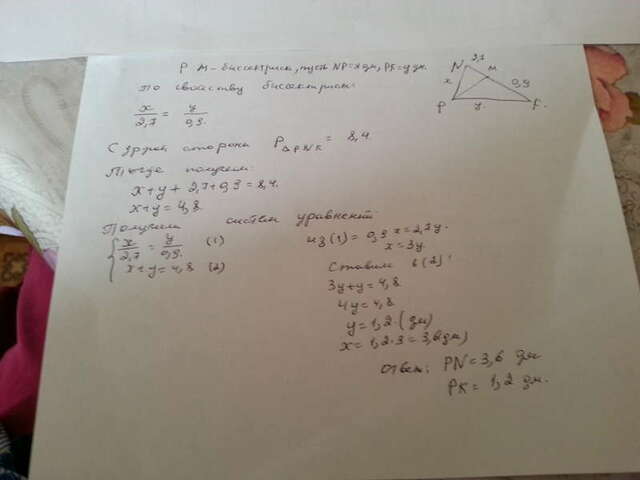 PM - биссектриса, пусть NP=x дм, PK=y дм.
По свойству биссектрисы:
x/2,7 = y/0,9.
С другой стороны P△PNK = 8,4.
Тогда получим:
x+y+2,7+0,9=8,4.
x+y=4,8.
Получили систему уравнений:
{ x/2,7 = y/0,9 (1)
x+y=4,8 (2)
из (1) = 0,9 x=2,7y.
x=3y.
Ставим в (2):
3y+y=4,8
4y=4,8.
y=1,2 (дм)
x=1,2·3=3,6 дм)
Ответ: PN=3,6 дм
PK=1,2 дм.
N
2,7
M
x
0,9
P
y
K.